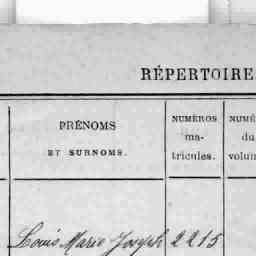 RÉPERTOIRE
PRÉNOMS
ET SURNOMS.
NUMÉROS
ma-
tricules.
NUMÉ
du
volum
Louis Marie Joseph 2215